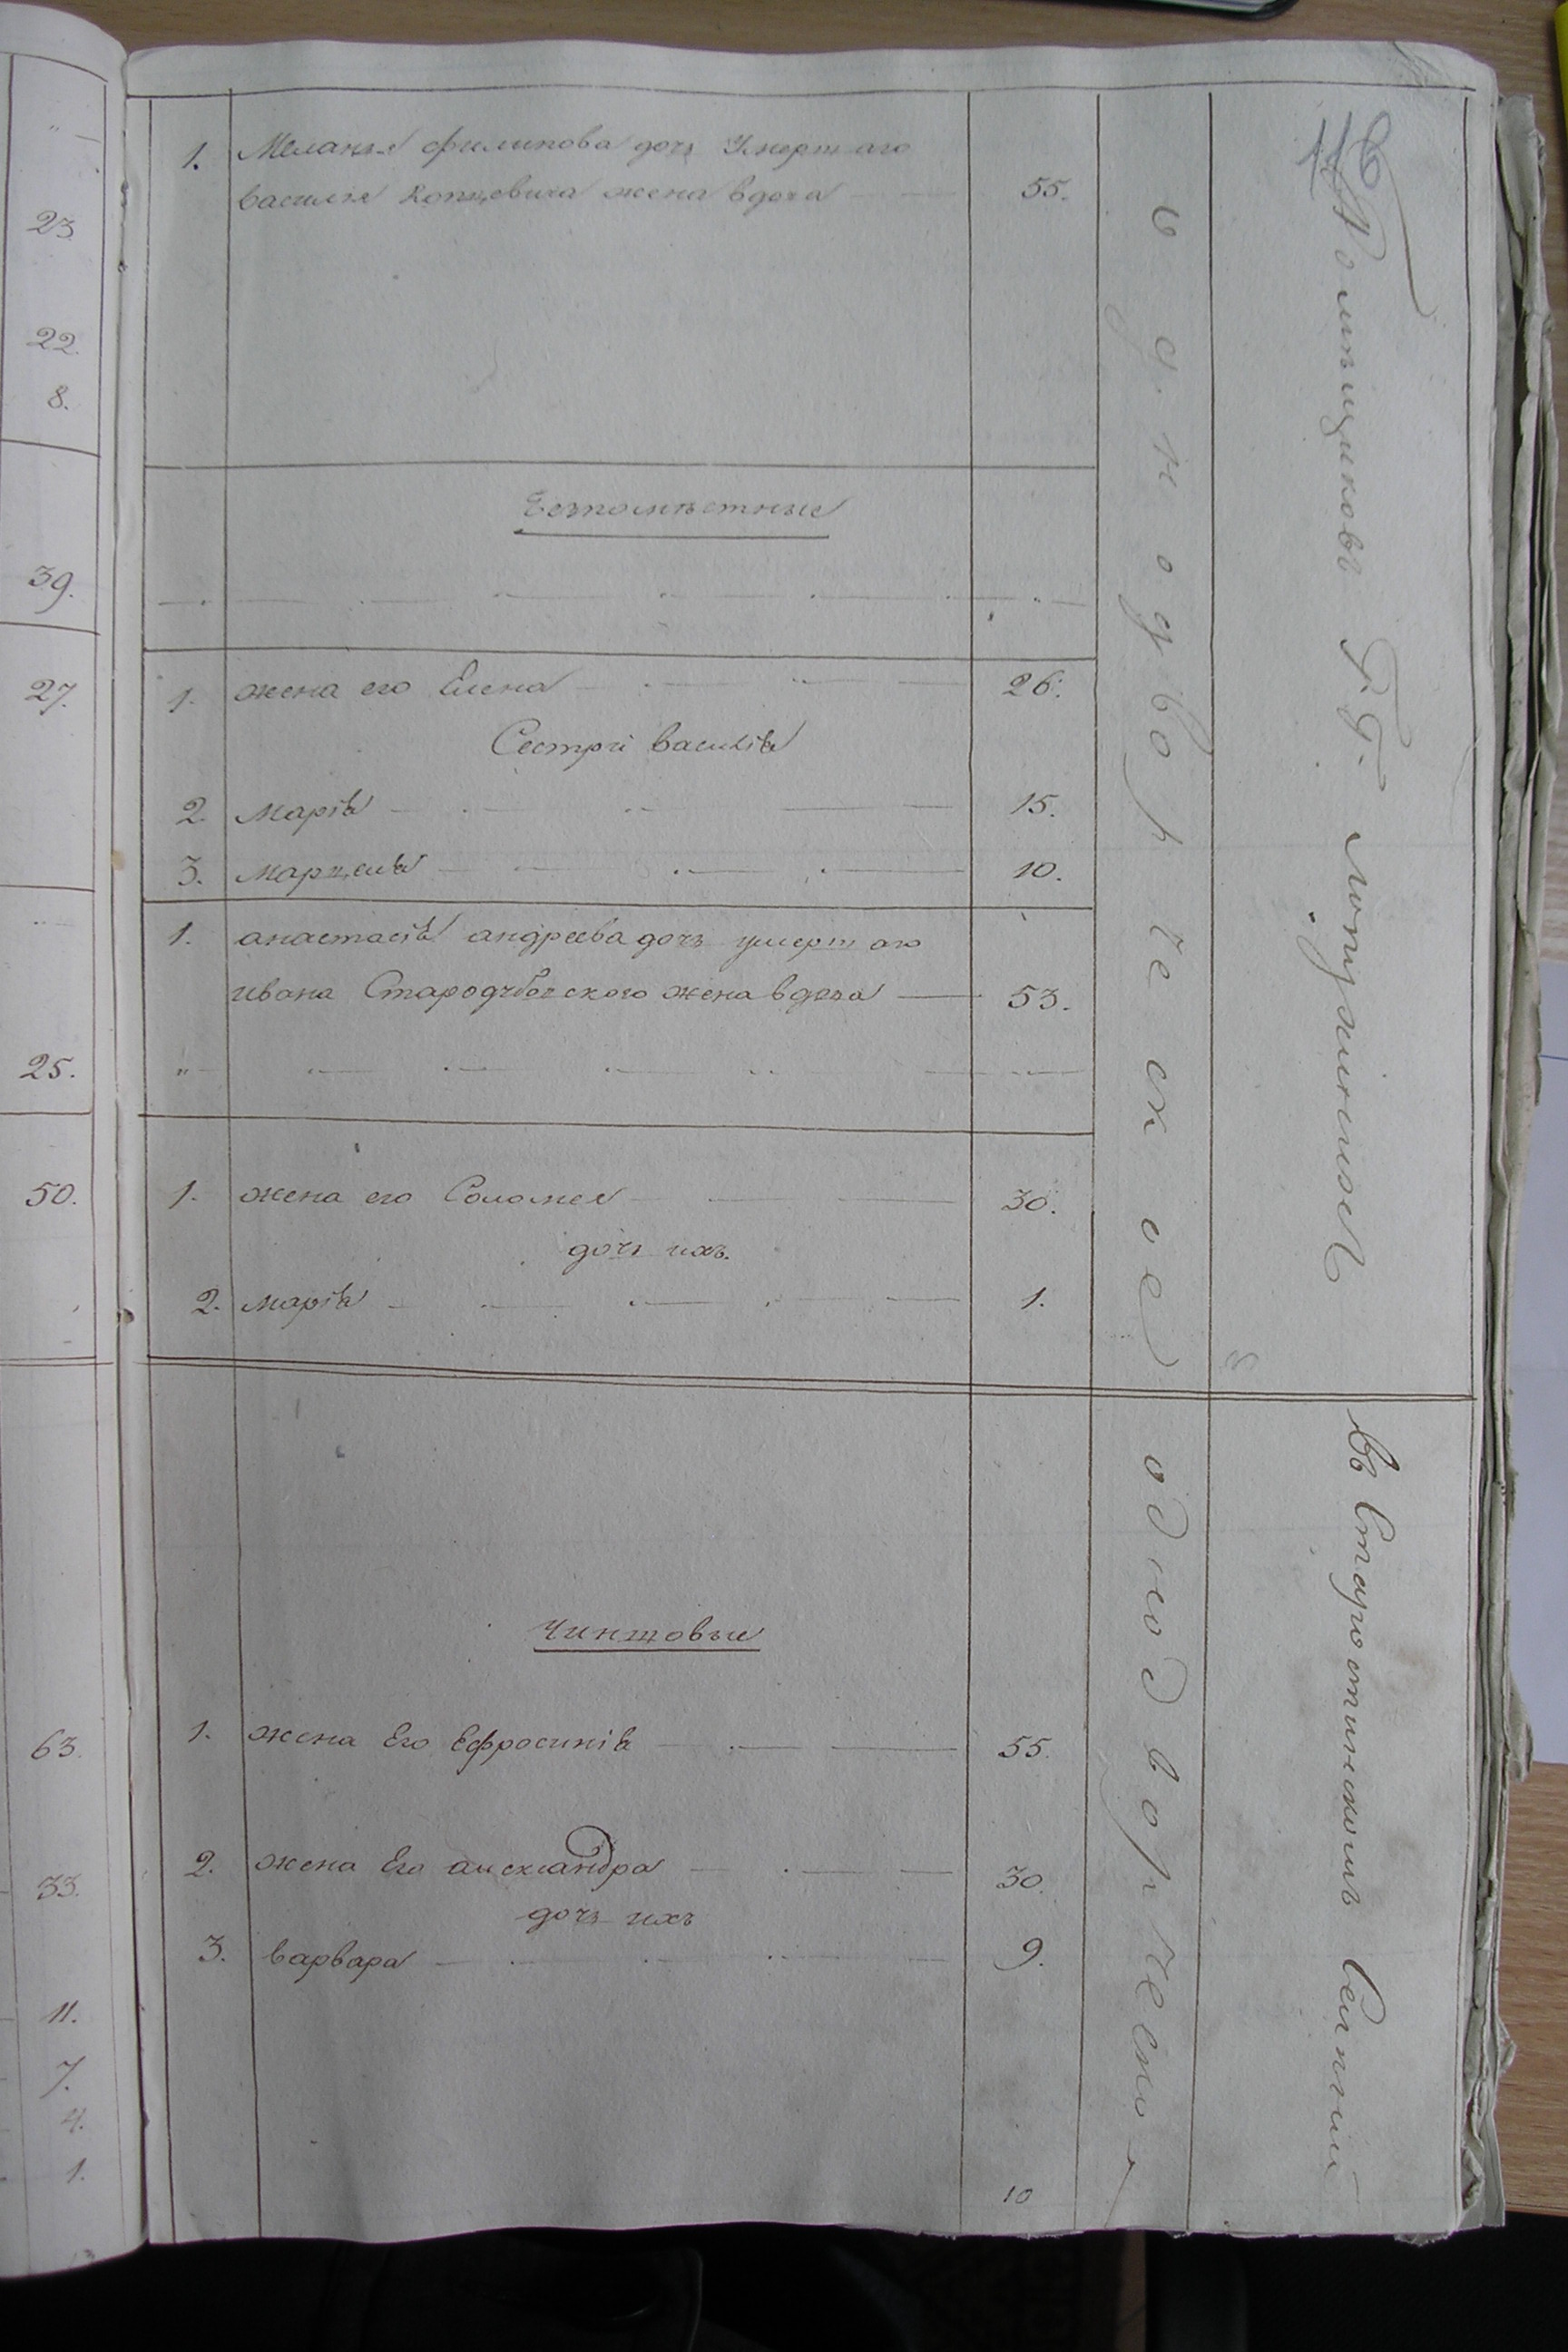 23.
22.
8.
39.
27.
25.
50.
63.
33.
11.
7.
4.
1.
1. Меланья филипова дочь Умершаго
василія Копцевича жена вдова 55.
Безпоместные
1. жена его Елена 26.
Сестри василія
2. Марія 15.
3. Марцеля 10.
1. анастасія андреева дочь умершаго
ивана жена вдова 53.
1. жена его Соломея 30.
дочь ихъ.
2. марія 1.
Чиншовые
1. жена Его Ефросинія 55.
2. жена Его александра 30.
дочь ихъ
3. варвара 9.
10
однодворческое
однодворческо
Помѣщиковъ Г.Г.
въ Старостинскомъ Селѣніи